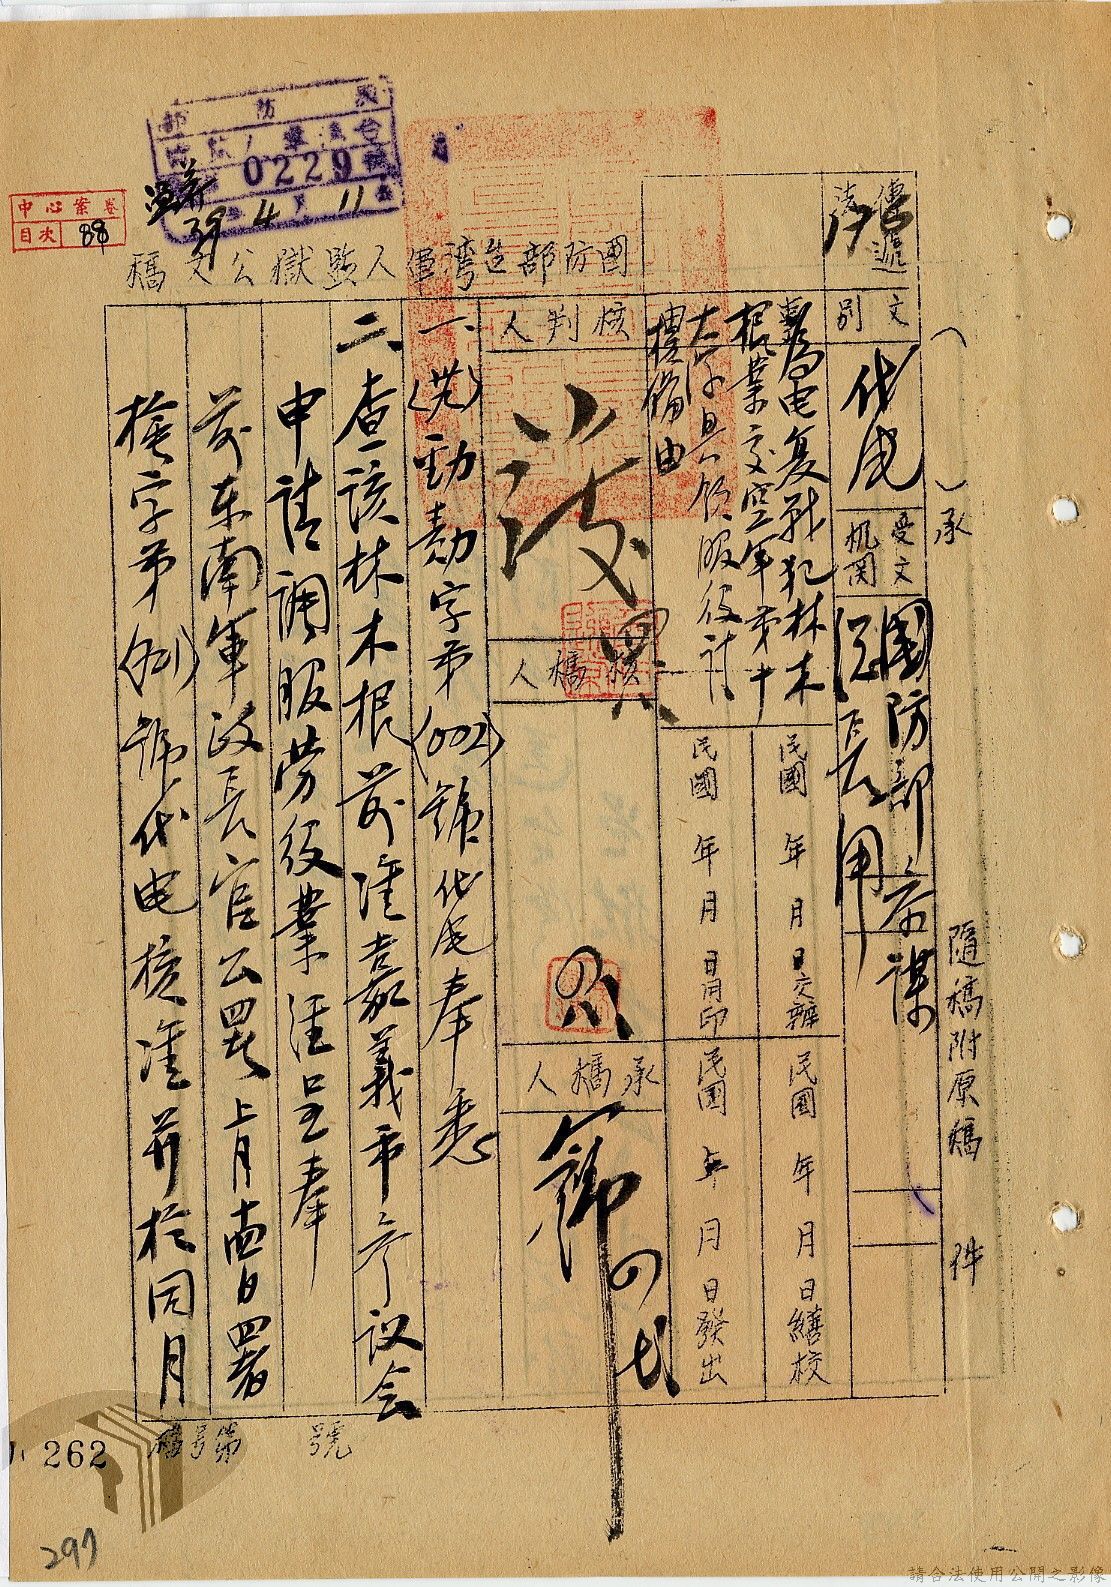 國防部
台灣軍人監獄
0229
39 4 11
中心案卷
目次 88
國防部台湾軍人監獄公文稿
傳遞
文別
代电
受文机関
國防部參謀總長周
承
隨稿附原稿 件
為电复戰犯林木
根業交空軍第十
大隊具領服役計
核判人
核稿人
承稿人
民國 年 月 日交辦
民國 年 月 日繕校
民國 年 月 日用印
民國 年 月 日發出
一、勁勣字第(002)號代电奉悉
二、查該林木根前准嘉義市參议会
申請調服勞役業經呈奉
前东南軍政長官公署 月 日署
字第(921)號代电核准并於同月
稿号第 號
262
297
請合法使用公開之影像